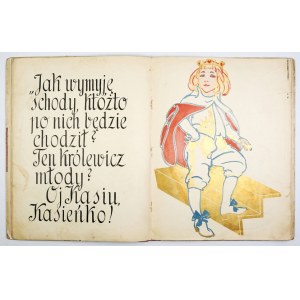 „Jak wymyję
schody, któżto
po nich będzie
chodził?
Ten królewicz
młody?
Oj Kasiu,
Kasieńko!